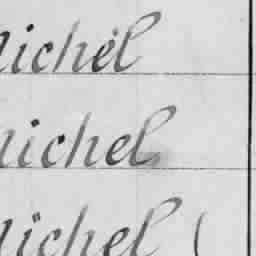 Michel
Michel
Michel (